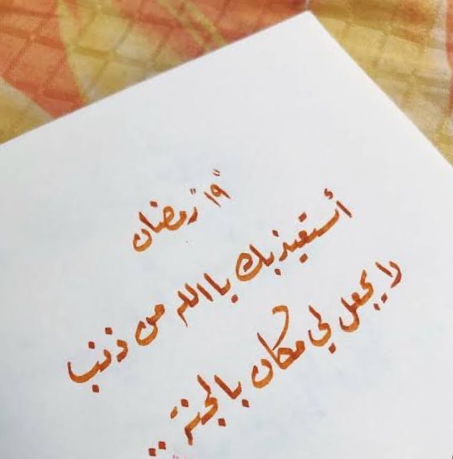 "١٩" رمضان
أستعيذ بك يا الله من ذنب
لا يجعل لي مكان بالجنة ..